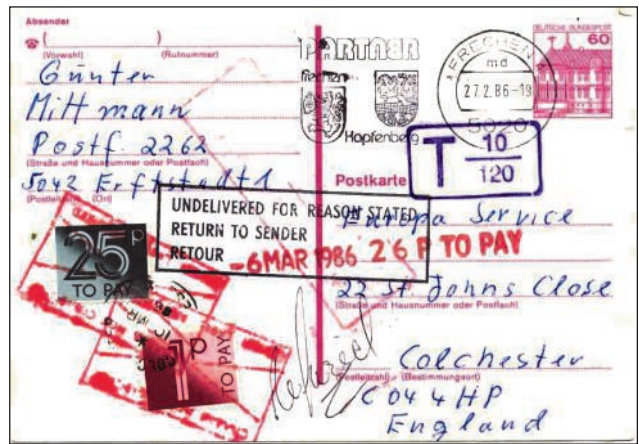 Absender
(Vorwahl) (Rufnummer)
Günter
Mittmann
Postf. 2262
(Straße und Hausnummer oder Postfach)
5042 Erftstadt 1
(Postleitzahl) (Ort)
PARTNER
Frechen
Hopfenberg
FRECHEN
md
27.2.86-19
5020
DEUTSCHE BUNDESPOST
60
T 10
120
Postkarte
UNDELIVERED FOR REASON STATED
RETURN TO SENDER
RETOUR
-6 MAR 1986 26 P TO PAY
Europa Service
22 St. Johns Close
(Straße und Hausnummer oder Postfach)
Colchester
(Postleitzahl) (Bestimmungsort)
CO4 4HP
England
25P
TO PAY
1P
TO PAY